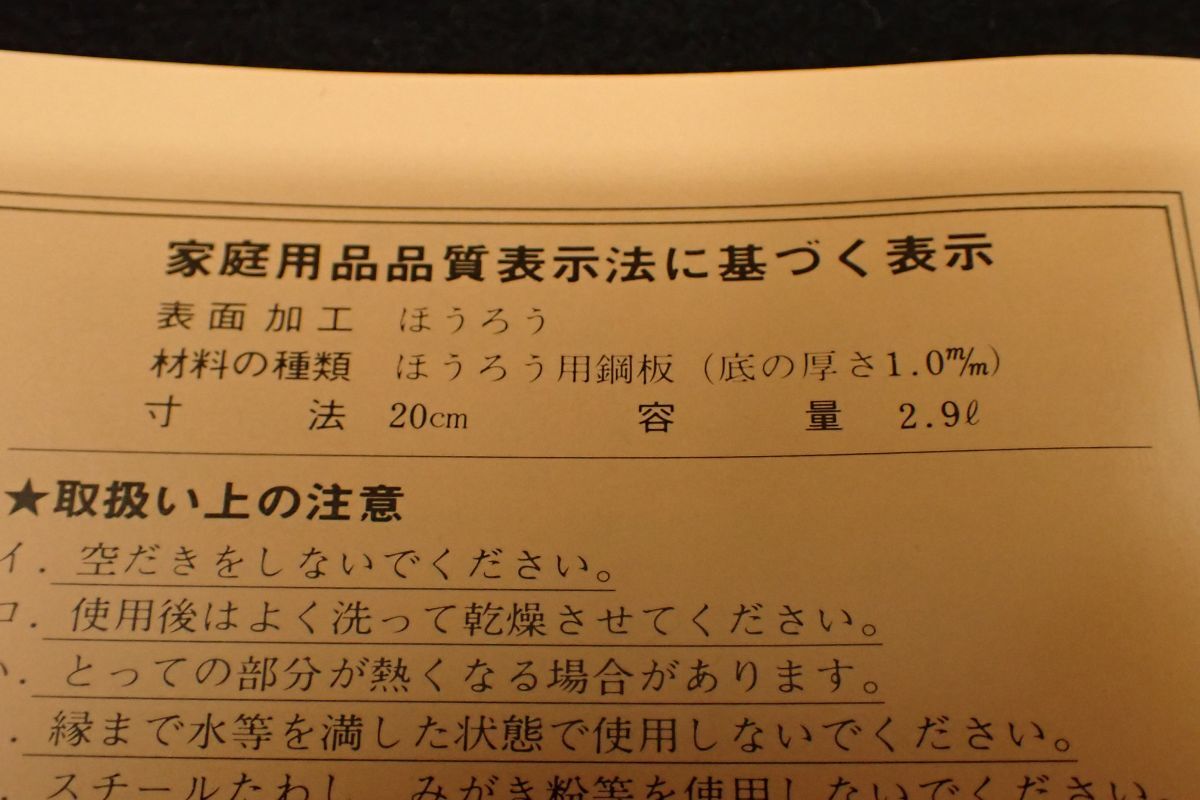 家庭用品品質表示法に基づく表示
表面加工 ほうろう
材料の種類 ほうろう用鋼板（底の厚さ1.0m/m）
寸法 20cm 容量 2.9ℓ
★取扱い上の注意
イ．空だきをしないでください。
ロ．使用後はよく洗って乾燥させてください。
ハ．とっての部分が熱くなる場合があります。
．縁まで水等を満した状態で使用しないでください。
スチールたわし、みがき粉等を使用しないでください。